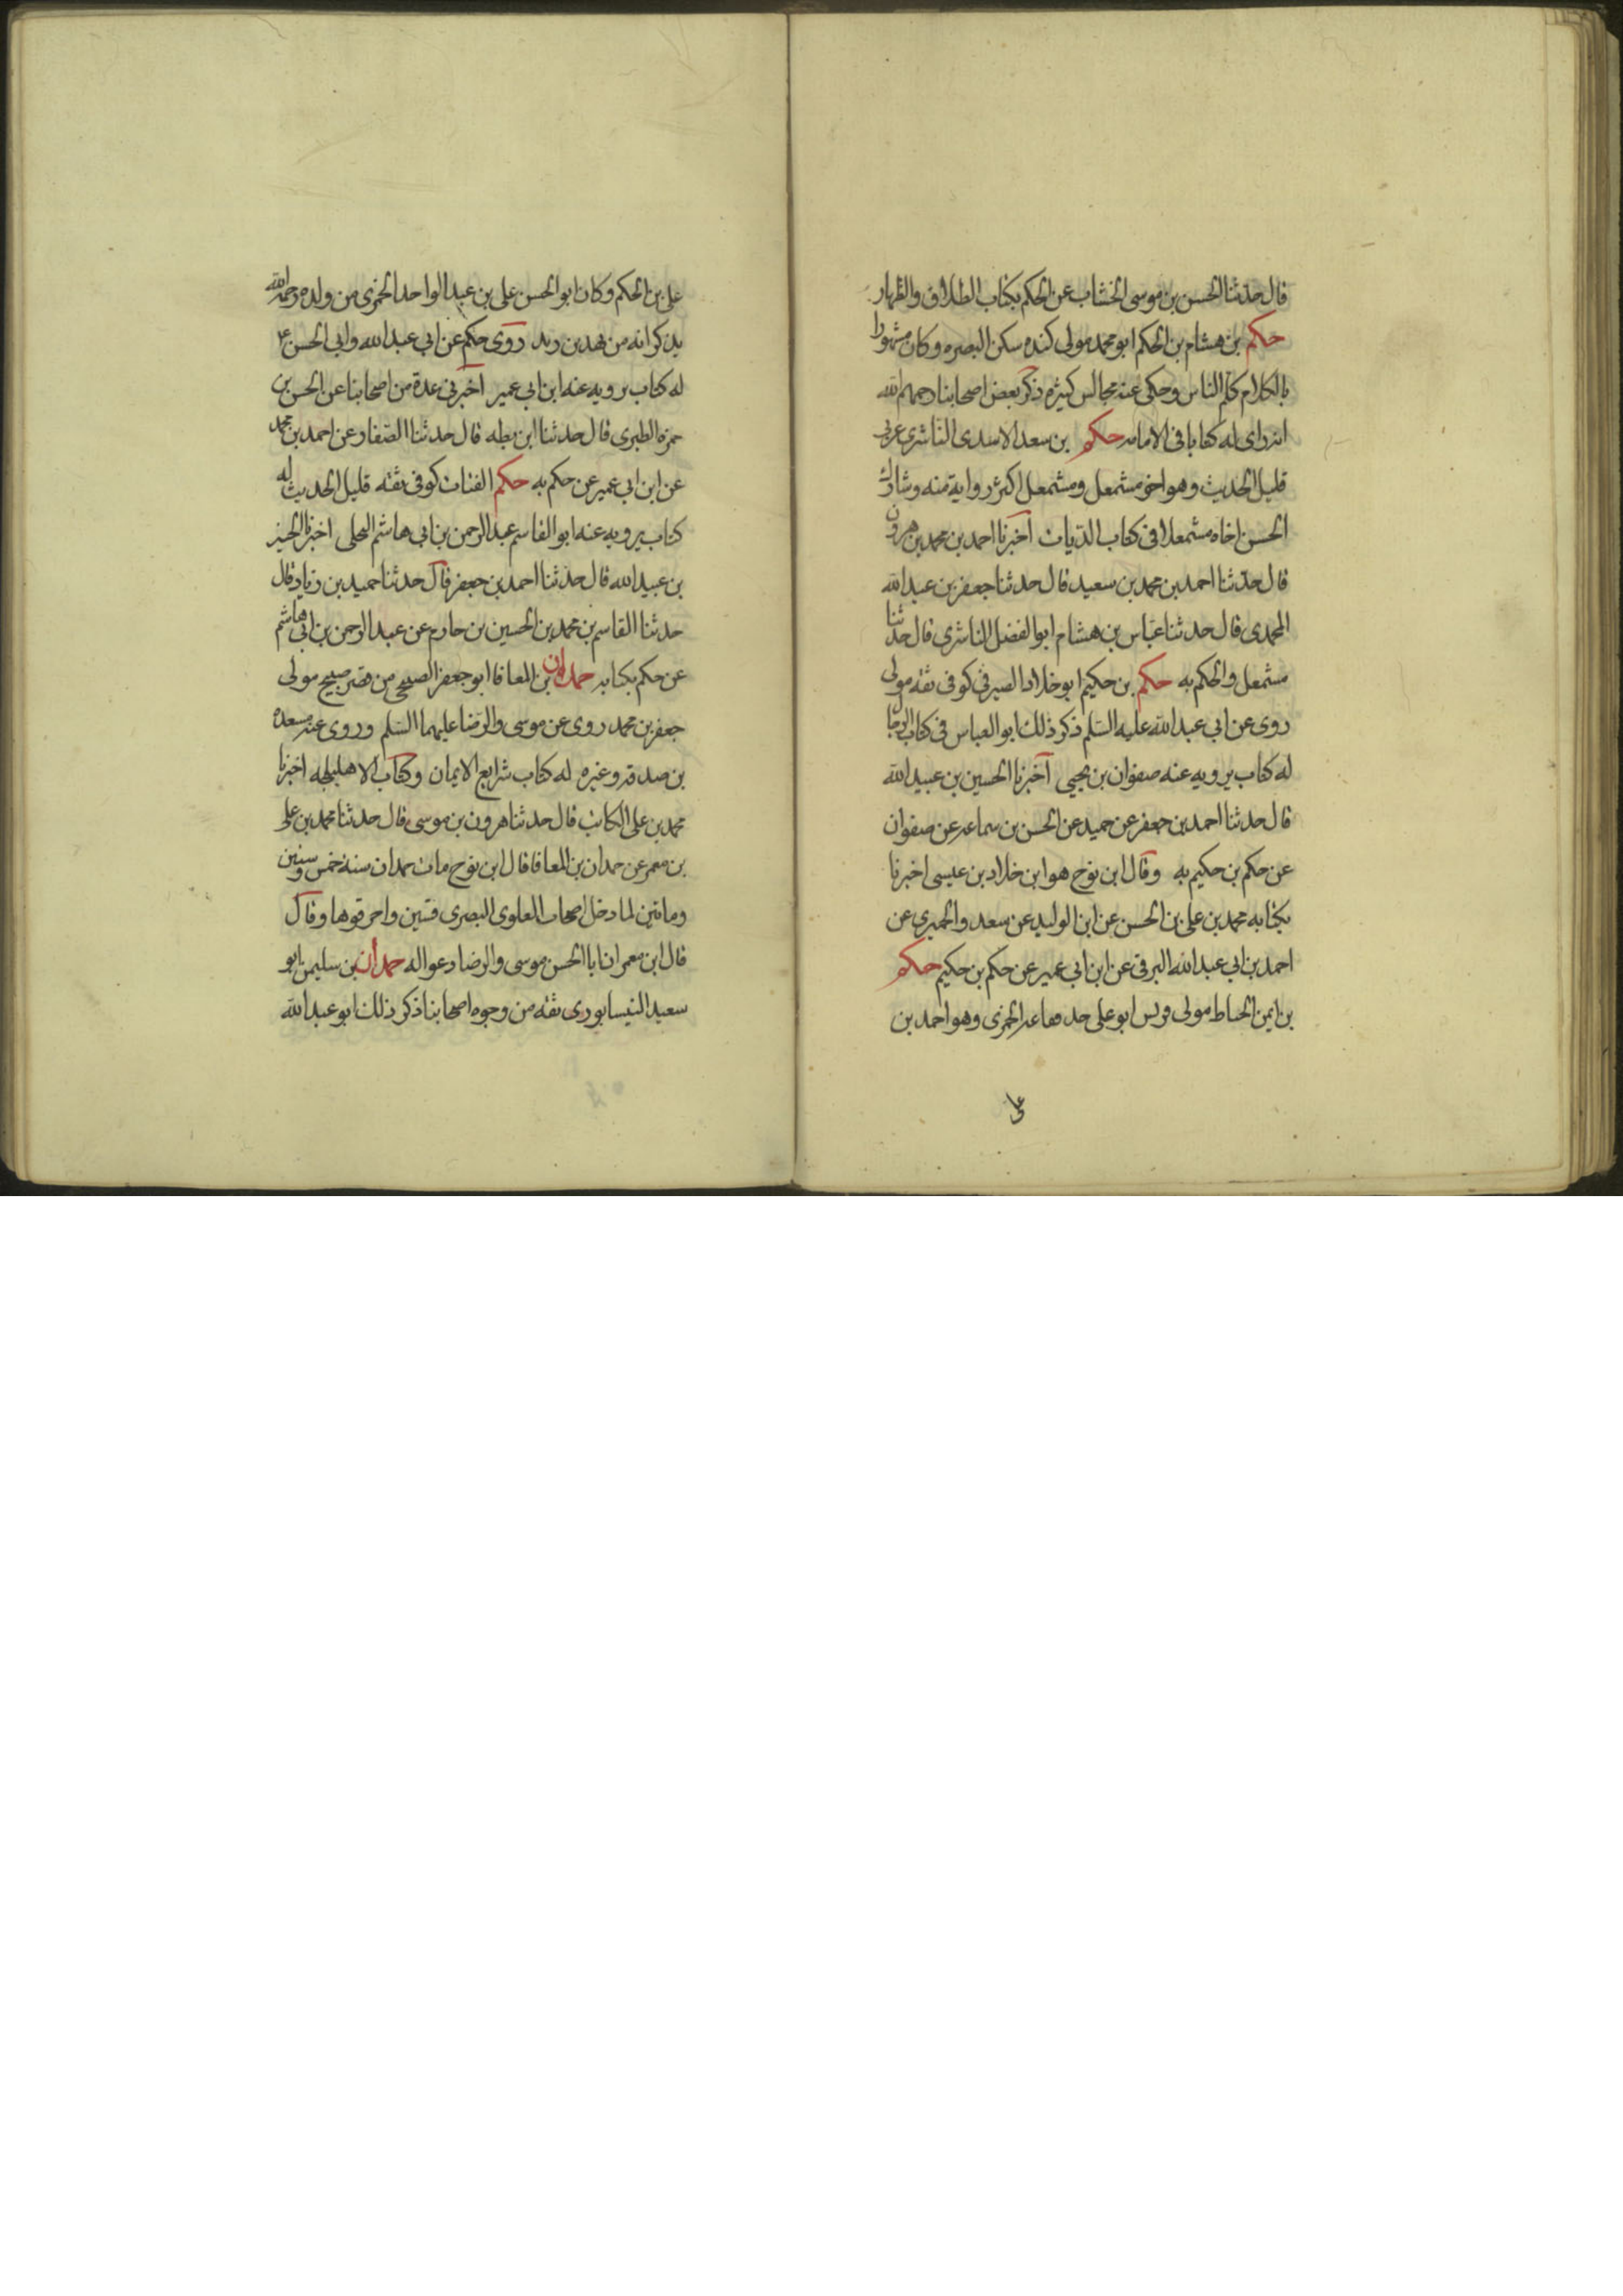 قال حدثنا الحسن بن موسى الخشاب عن الحكم بكتاب الطلاق والظهار
حكم بن هشام بن الحكم ابو محمد مولى كنده سكن البصره وكان مشهورا
بالكلام كلم الناس وحكى عنه مجالس كثيره ذكر بعض اصحابنا رحمهم الله
انه راى له كتابا فى الامامه حكم بن سعد الاسدى الناشرى عربى
قليل الحديث وهو اخو مشمعل ومشمعل اكثر رواية منه وشارك
الحسن اخاه مشمعلا فى كتاب الديات اخبرنا احمد بن محمد بن هرون
قال حدثنا احمد بن محمد بن سعيد قال حدثنا جعفر بن عبد الله
المحمدى قال حدثنا عباس بن هشام ابو الفضل الناشرى قال حدثنا
مشمعل والحكم به حكم بن حكيم ابو خلاد الصيرفى كوفى ثقه مولى
روى عن ابى عبد الله عليه السلم ذكر ذلك ابو العباس فى كتاب الرجال
له كتاب يرويه عنه صفوان بن يحيى اخبرنا الحسين بن عبيد الله
قال حدثنا احمد بن جعفر عن حميد عن الحسن بن سماعه عن صفوان
عن حكم بن حكيم به وقال ابن نوح هو ابن خلاد بن عيسى اخبرنا
بكتابه محمد بن على بن الحسن عن ابن الوليد عن سعد والحميرى عن
احمد بن ابى عبد الله البرقى عن ابن ابى عمير عن حكم بن حكيم حكم
بن ايمن الحناط مولى قريش ابو على جد فقاعه الخمرى وهو احمد بن
على
على بن الحكم وكان ابو الحسن على بن عبد الواحد الخمرى من ولده رحمه الله
يذكر انه من نهد بن زيد روى حكم عن ابى عبد الله وابى الحسن ع
له كتاب يرويه عنه ابن ابى عمير اخبرنى عدة من اصحابنا عن الحسن بن
حمزه الطبرى قال حدثنا ابن بطه قال حدثنا الصفار عن احمد بن محمد
عن ابن ابى عمير عن حكم به حكم القتات كوفى ثقه قليل الحديث له
كتاب يرويه عنه ابو القاسم عبد الرحمن بن ابى هاشم البجلى اخبرنا الحسين
بن عبيد الله قال حدثنا احمد بن جعفر قال حدثنا حميد بن زياد قال
حدثنا القاسم بن محمد بن الحسين بن حازم عن عبد الرحمن بن ابى هاشم
عن حكم بكتابه حمدان بن المعافا ابو جعفر الصبيحى من قصر صبيح مولى
جعفر بن محمد روى عن موسى والرضا عليهما السلم وروى عنه مسعده
بن صدقه وغيره له كتاب شرايع الايمان وكتاب الاهليلجه اخبرنا
محمد بن على الكاتب قال حدثنا هرون بن موسى قال حدثنا محمد بن على
بن معمر عن حمدان بن المعافا قال ابن نوح مات حمدان سنة خمس وستين
ومائتين لما دخل اصحاب العلوى البصرى قسين واحرقوها وقال
قال ابن معمر ان ابا الحسن موسى والرضا دعوا له حمدان بن سليمن ابو
سعيد النيسابورى ثقه من وجوه اصحابنا ذكر ذلك ابو عبد الله